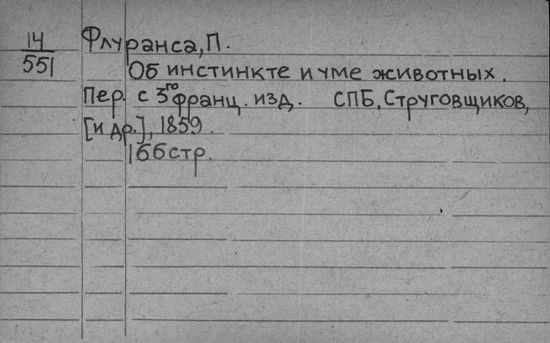 14
551
Флуранса, П.
Об инстинкте и уме животных.
Пер. с 3го франц. изд. СПБ, Струговщиков,
[и др.], 1859.
166 стр.